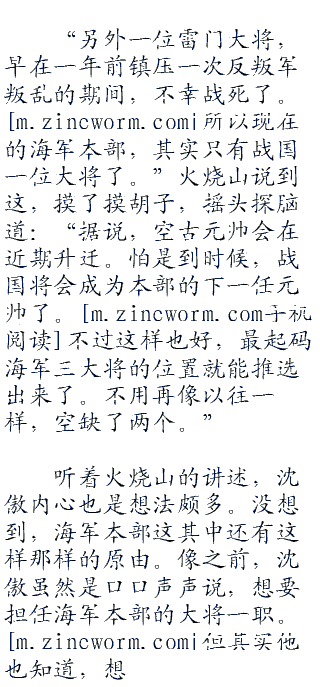 “另外一位雷门大将，
早在一年前镇压一次反叛军
叛乱的期间，不幸战死了。
[m.zincworm.com]所以现在
的海军本部，其实只有战国
一位大将了。”火烧山说到
这，摸了摸胡子，摇头探脑
道：“据说，空古元帅会在
近期升迁。怕是到时候，战
国将会成为本部的下一任元
帅了。[m.zincworm.com手机
阅读]不过这样也好，最起码
海军三大将的位置就能推选
出来了。不用再像以往一
样，空缺了两个。”
听着火烧山的讲述，沈
傲内心也是想法颇多。没想
到，海军本部这其中还有这
样那样的原由。像之前，沈
傲虽然是口口声声说，想要
担任海军本部的大将一职。
[m.zincworm.com]但其实他
也知道，想